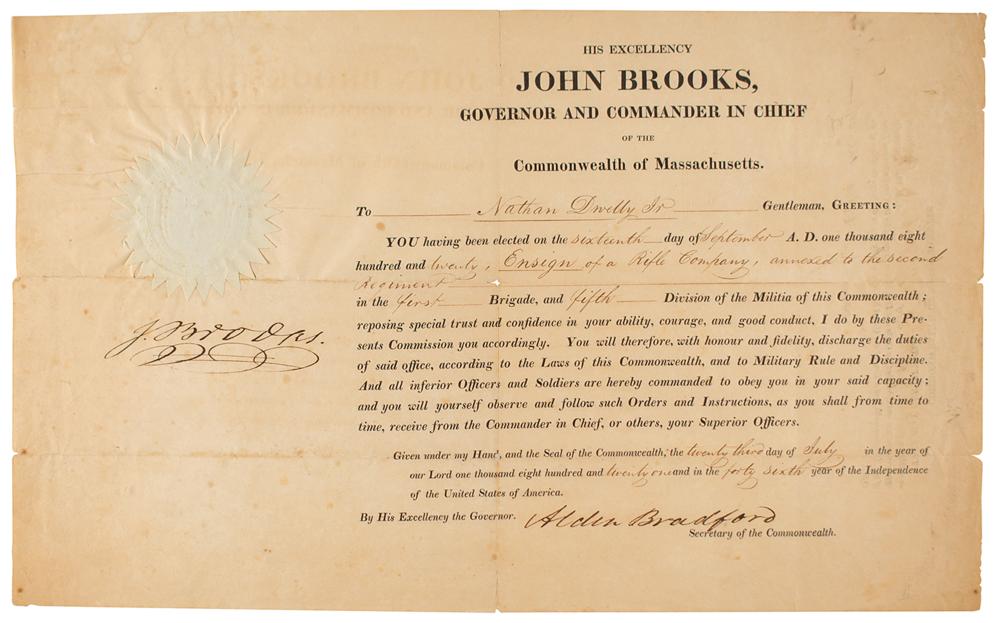 HIS EXCELLENCY
JOHN BROOKS,
GOVERNOR AND COMMANDER IN CHIEF
OF THE
Commonwealth of Massachusetts.
To Nathan Dwelly Jr Gentleman, GREETING:
YOU having been elected on the sixteenth day of September A. D. one thousand eight
hundred and twenty, Ensign of a Rifle Company, annexed to the second
Regiment
in the first Brigade, and fifth Division of the Militia of this Commonwealth;
reposing special trust and confidence in your ability, courage, and good conduct, I do by these Pre-
sents Commission you accordingly. You will therefore, with honour and fidelity, discharge the duties
of said office, according to the Laws of this Commonwealth, and to Military Rule and Discipline.
And all inferior Officers and Soldiers are hereby commanded to obey you in your said capacity;
and you will yourself observe and follow such Orders and Instructions, as you shall from time to
time, receive from the Commander in Chief, or others, your Superior Officers.
J. Brooks.
Given under my Hand, and the Seal of the Commonwealth, the twenty third day of July in the year of
our Lord one thousand eight hundred and twenty one and in the forty sixth year of the Independence
of the United States of America.
By His Excellency the Governor. Alden Bradford
Secretary of the Commonwealth.